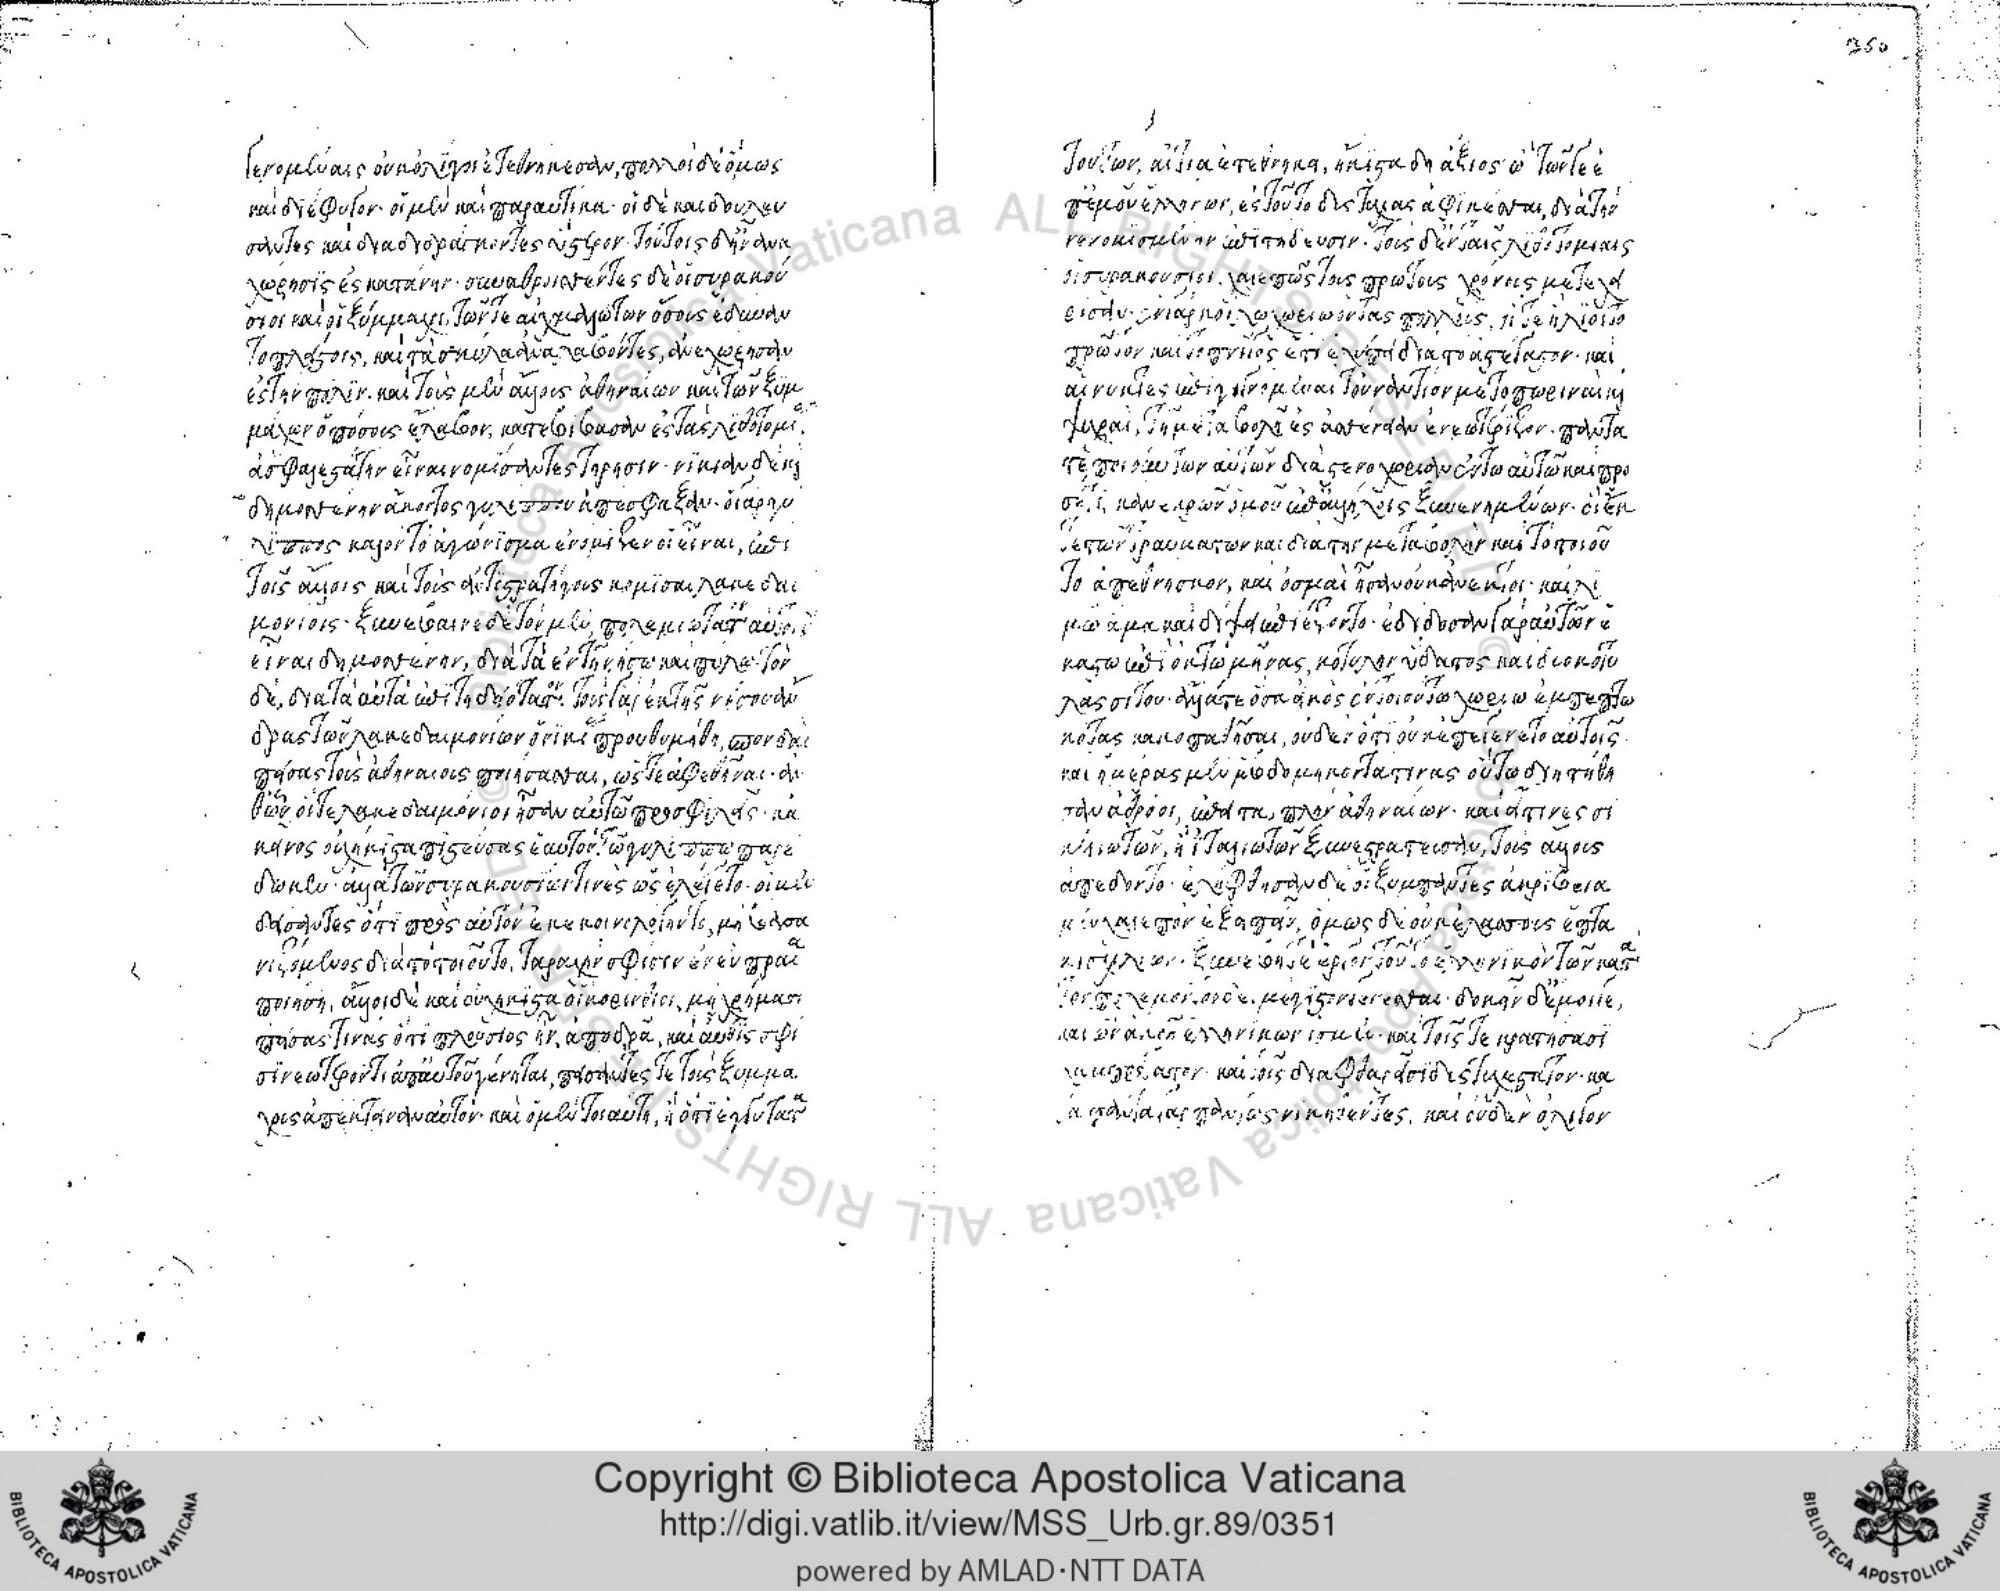 γενομέναις οὐκ ὀλίγοι ἐτεθνήκεσαν, πολλοὶ δὲ ὅμως
καὶ διέφυγον· οἱ μὲν καὶ παραυτίκα· οἱ δὲ καὶ δουλεύ
σαντες καὶ διαδιδράσκοντες ὕστερον· τούτοις δ' ἦν ἀνα
χώρησις ἐς κατάνην· ξυναθροισθέντες δὲ οἱ συρακού
σιοι καὶ οἱ ξύμμαχοι, τῶν τε αἰχμαλώτων ὅσους ἐδύναν
το πλείστους, καὶ τὰ σκῦλα ἀναλαβόντες, ἀνεχώρησαν
ἐς τὴν πόλιν. καὶ τοὺς μὲν ἄλλους ἀθηναίων καὶ τῶν ξυμ
μάχων ὁπόσους ἔλαβον, κατεβίβασαν ἐς τὰς λιθοτομί
ἀσφαλεστάτην εἶναι νομίσαντες τήρησιν· νικίαν δὲ καὶ
δημοσθένην ἄκοντος γυλίππου ἀπέσφαξαν. ὁ γὰρ γύ
λιππος καλὸν τὸ ἀγώνισμα ἐνόμιζεν οἱ εἶναι, ἐπὶ
τοῖς ἄλλοις καὶ τοὺς ἀντιστρατήγους κομίσαι λακεδαι
μονίοις· ξυνέβαινε δὲ τὸν μὲν πολεμιώτατον αὐτοῖς
εἶναι δημοσθένην, διὰ τὰ ἐν τῇ νήσῳ καὶ πύλῳ· τὸν
δὲ, διὰ τὰ αὐτὰ ἐπιτηδειότατον· τοὺς γὰρ ἐκ τῆς νήσου ἄν
δρας τῶν λακεδαιμονίων ὁ νικίας προυθυμήθη, σπονδὰς
πείσας τοὺς ἀθηναίους ποιήσασθαι, ὥστε ἀφεθῆναι· ἀν
θ' ὧν οἵ τε λακεδαιμόνιοι ἦσαν αὐτῷ προσφιλεῖς· κἀ
κεῖνος οὐχ ἥκιστα πιστεύσας ἑαυτὸν τῷ γυλίππῳ παρέ
δωκεν· ἀλλὰ τῶν συρακουσίων τινὲς ὡς ἐλέγετο· οἱ μὲν
δείσαντες ὅτι πρὸς αὐτὸν ἐκεκοινολόγηντο, μὴ βασα
νιζόμενος διὰ τὸ τοιοῦτο, ταραχὴν σφίσιν ἐν εὐπραγίᾳ
ποιήσῃ, ἄλλοι δὲ καὶ οὐχ ἥκιστα οἱ κορίνθιοι, μὴ χρήμασι
πείσας τινὰς ὅτι πλούσιος ἦν, ἀποδρᾷ, καὶ αὖθις σφί
σι νεώτερόν τι ἀπ' αὐτοῦ γένηται, πείσαντες τε τοὺς ξυμμά
χους ἀπέκτειναν αὐτόν· καὶ ὁ μὲν τοιαύτῃ, ἢ ὅτι ἐγγύτατα
350
τούτων, αἰτίᾳ ἐτεθνήκει, ἥκιστα δὴ ἄξιος ὢν τῶν γε ἐ
π' ἐμοῦ ἑλλήνων, ἐς τοῦτο δυστυχίας ἀφικέσθαι, διὰ τὴν
νενομισμένην ἐπιτήδευσιν· τοὺς δ' ἐν ταῖς λιθοτομίαις
οἱ συρακούσιοι, χαλεπῶς τοὺς πρώτους χρόνους μετεχεί
ρισαν· ἐν γὰρ κοίλῳ χωρίῳ ὄντας πολλοὺς, οἵ τε ἥλιοι τὸ
πρῶτον καὶ τὸ πνῖγος ἔτι ἐλύπει διὰ τὸ ἀστέγαστον· καὶ
αἱ νύκτες ἐπιγιγνόμεναι τοὐναντίον μετοπωριναὶ καὶ
ψυχραὶ, τῇ μεταβολῇ ἐς ἀσθένειαν ἐνεωτέριζον· πάντα
τε ποιούντων αὐτῶν διὰ στενοχωρίαν ἐν τῷ αὐτῷ καὶ προ
σέτι νεκρῶν ὁμοῦ ἐπ' ἀλλήλοις ξυννενημένων· οἳ ἔκ
τε τῶν τραυμάτων καὶ διὰ τὴν μεταβολὴν καὶ τὸ τοιοῦ
το ἀπέθνησκον, καὶ ὀσμαὶ ἦσαν οὐκ ἀνεκτοί· καὶ λι
μῷ ἅμα καὶ δίψει ἐπιέζοντο· ἐδίδοσαν γὰρ αὐτῶν ἑ
κάστῳ ἐπὶ ὀκτὼ μῆνας, κοτύλην ὕδατος καὶ δύο κοτύ
λας σίτου· ἄλλα τε ὅσα εἰκὸς ἐν τοιούτῳ χωρίῳ ἐμπεπτω
κότας κακοπαθῆσαι, οὐδὲν ὅτι οὐκ ἐπεγένετο αὐτοῖς.
καὶ ἡμέρας μὲν ἑβδομήκοντά τινας οὕτω διῃτήθη
σαν ἀθρόοι, ἔπειτα, πλὴν ἀθηναίων· καὶ εἴ τινες σι
κελιωτῶν, ἢ ἰταλιωτῶν ξυνεστράτευσαν, τοὺς ἄλλους
ἀπέδοντο· ἐλήφθησαν δὲ οἱ ξύμπαντες ἀκριβείᾳ
μὲν χαλεπὸν ἐξειπεῖν, ὅμως δὲ οὐκ ἐλάσσους ἑπτα
κισχιλίων· ξυνέβη τε ἔργον τοῦτο ἑλληνικὸν τῶν κατὰ
τὸν πόλεμον τόνδε μέγιστον γενέσθαι· δοκεῖν δ' ἔμοιγε,
καὶ ὧν ἀκοῇ ἑλληνικῶν ἴσμεν· καὶ τοῖς τε κρατήσασι
λαμπρότατον· καὶ τοῖς διαφθαρεῖσι δυστυχέστατον· κα
τὰ πάντα γὰρ πάντως νικηθέντες, καὶ οὐδὲν ὀλίγον
Copyright © Biblioteca Apostolica Vaticana
http://digi.vatlib.it/view/MSS_Urb.gr.89/0351
powered by AMLAD·NTT DATA